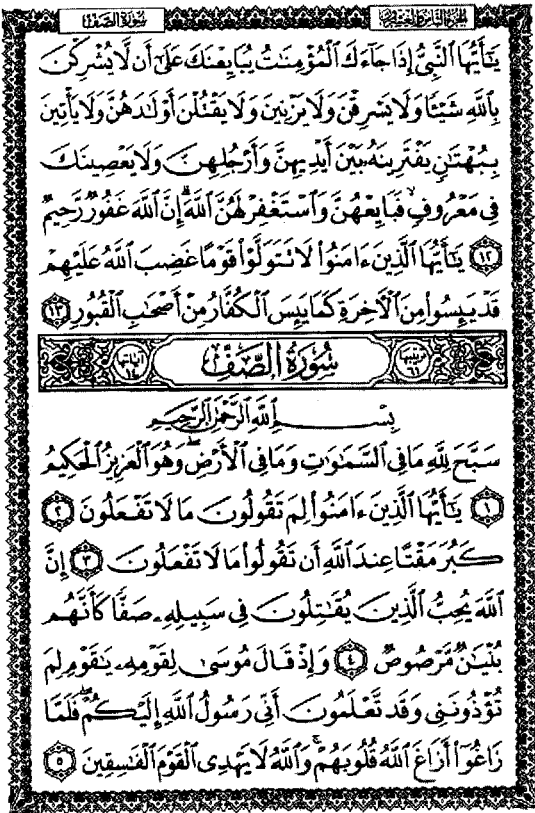 سورة الصف الجزء الثامن والعشرون
يَٰٓأَيُّهَا ٱلنَّبِيُّ إِذَا جَآءَكَ ٱلْمُؤْمِنَٰتُ يُبَايِعْنَكَ عَلَىٰٓ أَن لَّا يُشْرِكْنَ
بِٱللَّهِ شَيْـًٔا وَلَا يَسْرِقْنَ وَلَا يَزْنِينَ وَلَا يَقْتُلْنَ أَوْلَٰدَهُنَّ وَلَا يَأْتِينَ
بِبُهْتَٰنٍ يَفْتَرِينَهُۥ بَيْنَ أَيْدِيهِنَّ وَأَرْجُلِهِنَّ وَلَا يَعْصِينَكَ
فِى مَعْرُوفٍ ۙ فَبَايِعْهُنَّ وَٱسْتَغْفِرْ لَهُنَّ ٱللَّهَ ۖ إِنَّ ٱللَّهَ غَفُورٌ رَّحِيمٌ
١٢ يَٰٓأَيُّهَا ٱلَّذِينَ ءَامَنُوا۟ لَا تَتَوَلَّوْا۟ قَوْمًا غَضِبَ ٱللَّهُ عَلَيْهِمْ
قَدْ يَئِسُوا۟ مِنَ ٱلْءَاخِرَةِ كَمَا يَئِسَ ٱلْكُفَّارُ مِنْ أَصْحَٰبِ ٱلْقُبُورِ ١٣
ترتيبها ٦١ سُورَةُ الصَّفِّ آياتها ١٤
بِسْمِ ٱللَّهِ ٱلرَّحْمَٰنِ ٱلرَّحِيمِ
سَبَّحَ لِلَّهِ مَا فِى ٱلسَّمَٰوَٰتِ وَمَا فِى ٱلْأَرْضِ ۖ وَهُوَ ٱلْعَزِيزُ ٱلْحَكِيمُ
١ يَٰٓأَيُّهَا ٱلَّذِينَ ءَامَنُوا۟ لِمَ تَقُولُونَ مَا لَا تَفْعَلُونَ ٢
كَبُرَ مَقْتًا عِندَ ٱللَّهِ أَن تَقُولُوا۟ مَا لَا تَفْعَلُونَ ٣ إِنَّ
ٱللَّهَ يُحِبُّ ٱلَّذِينَ يُقَٰتِلُونَ فِى سَبِيلِهِۦ صَفًّا كَأَنَّهُم
بُنْيَٰنٌ مَّرْصُوصٌ ٤ وَإِذْ قَالَ مُوسَىٰ لِقَوْمِهِۦ يَٰقَوْمِ لِمَ
تُؤْذُونَنِى وَقَد تَّعْلَمُونَ أَنِّى رَسُولُ ٱللَّهِ إِلَيْكُمْ ۖ فَلَمَّا
زَاغُوٓا۟ أَزَاغَ ٱللَّهُ قُلُوبَهُمْ ۚ وَٱللَّهُ لَا يَهْدِى ٱلْقَوْمَ ٱلْفَٰسِقِينَ ٥